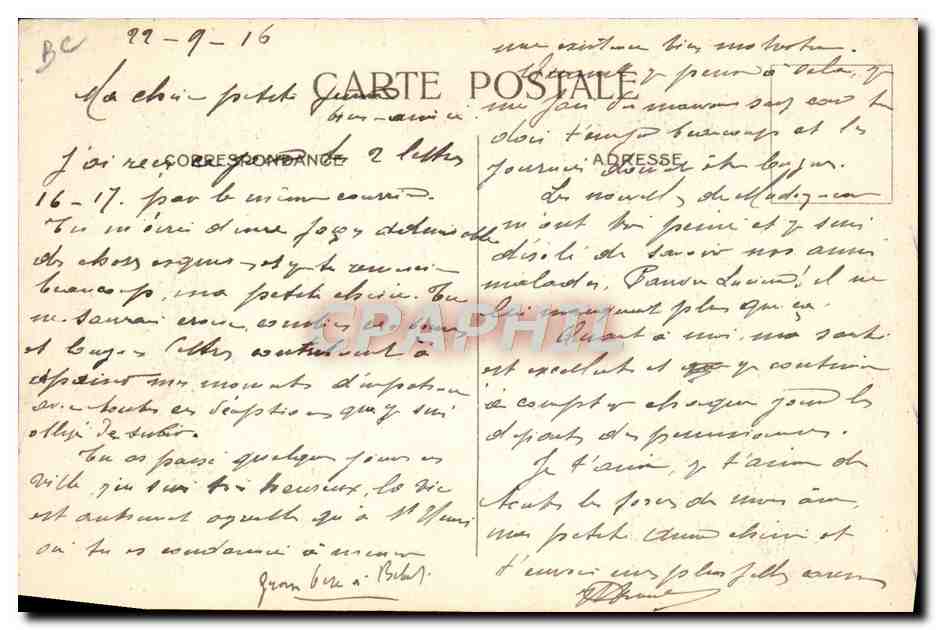 BC
22-9-16
CARTE POSTALE
Ma chère petite
bien-aimée
CORRESPONDANCE
J'ai reçu 2 lettres
16-17. par le même courrier.
Tu m'écris d'une façon adorable
des choses exquises et je te remercie
beaucoup, ma petite chérie. Tu
ne saurais croire combien ces bonnes
et longues lettres contribuent à
apaiser mes moments d'impatience
avec toutes ces déceptions que je suis
obligé de subir.
Tu as passé quelques jours en
ville, j'en suis très heureux, la vie
est autrement agréable qu'à St
où tu es condamnée à mener
Gros bise à
une existence bien monotone.
Quand je pense à cela, je
me fais du mauvais sang car tu
dois t'ennuyer beaucoup et les
journées doivent être longues.
ADRESSE
Les nouvelles de
m'ont fait peine et je suis
désolé de savoir nos amis
malades, Pauvre Lucien, il ne
lui manquait plus que ça.
Quant à moi, ma santé
est excellente et je continue
à compter chaque jour les
départs des permissionnaires.
Je t'aime, je t'aime de
toutes les forces de mon âme
ma petite chérie et
t'envoie mes plus folles caresses
CPARHIL